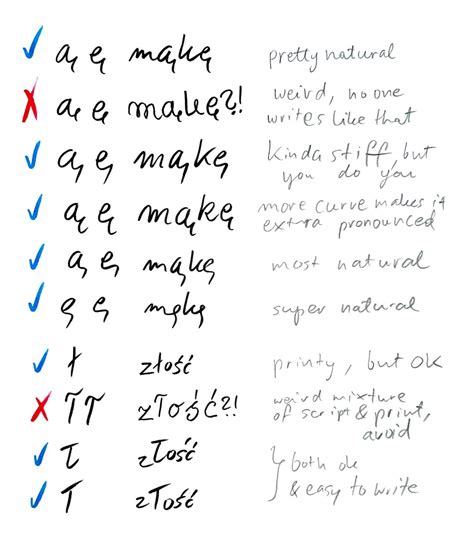 ą ę mąkę pretty natural
ą ę mąkę?! weird, no one
writes like that
ą ę mąkę kinda stiff, but
you do you
ą ę mąkę more curve makes it
extra pronounced
ą ę mąkę most natural
ę ę mękę super natural
ł złość printy, but OK
ł ł złość?! weird mixture
of script & print,
avoid
ł złość both ok
ł złość & easy to write